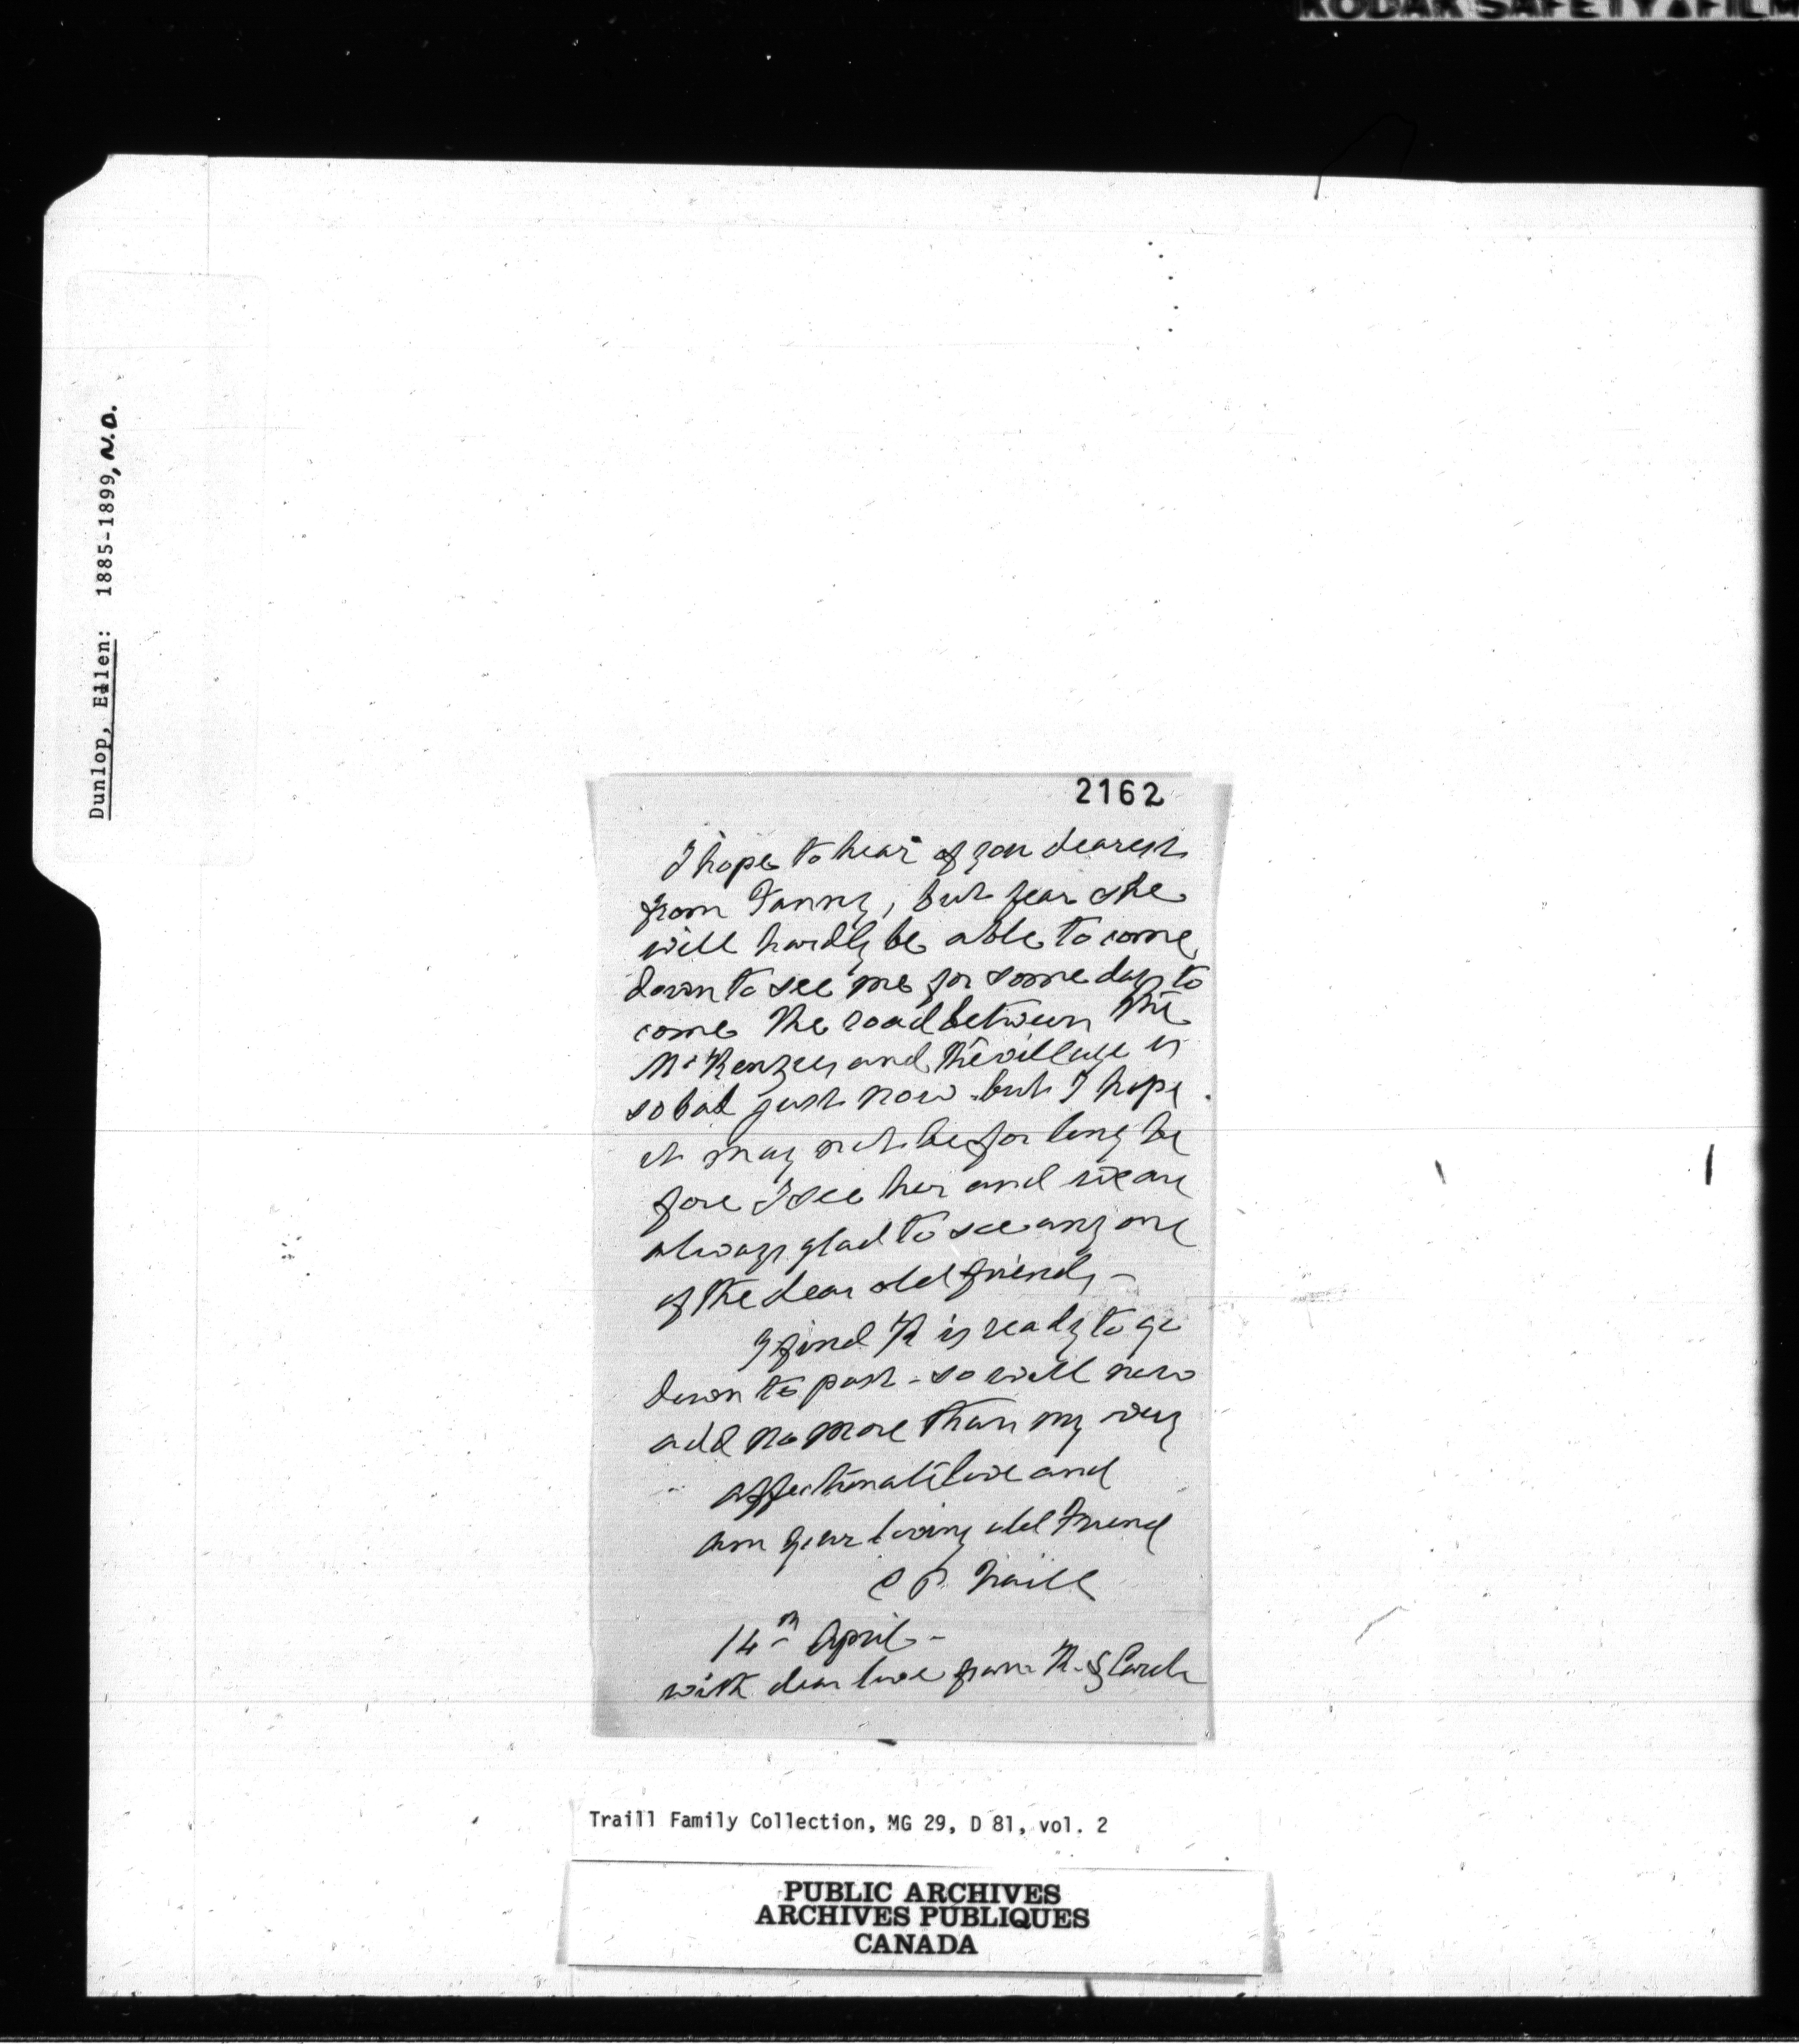 KODAK SAFETY FILM
Dunlop, Ellen: 1885-1899, N.D.
2162
I hope to hear of you dearest
from Fanny, but fear she
will hardly be able to come
down to see me for some days to
come the road between the
McKenzies and the village is
so bad just now - but I hope
it may not be for long be
fore I see her and we are
always glad to see any one
of the dear old friends -
I find K is ready to go
down to post - so will now
add no more than my very
affectionate love and
am your loving old friend
C P Traill
14th April -
with dear love from K. &
Traill Family Collection, MG 29, D 81, vol. 2
PUBLIC ARCHIVES
ARCHIVES PUBLIQUES
CANADA